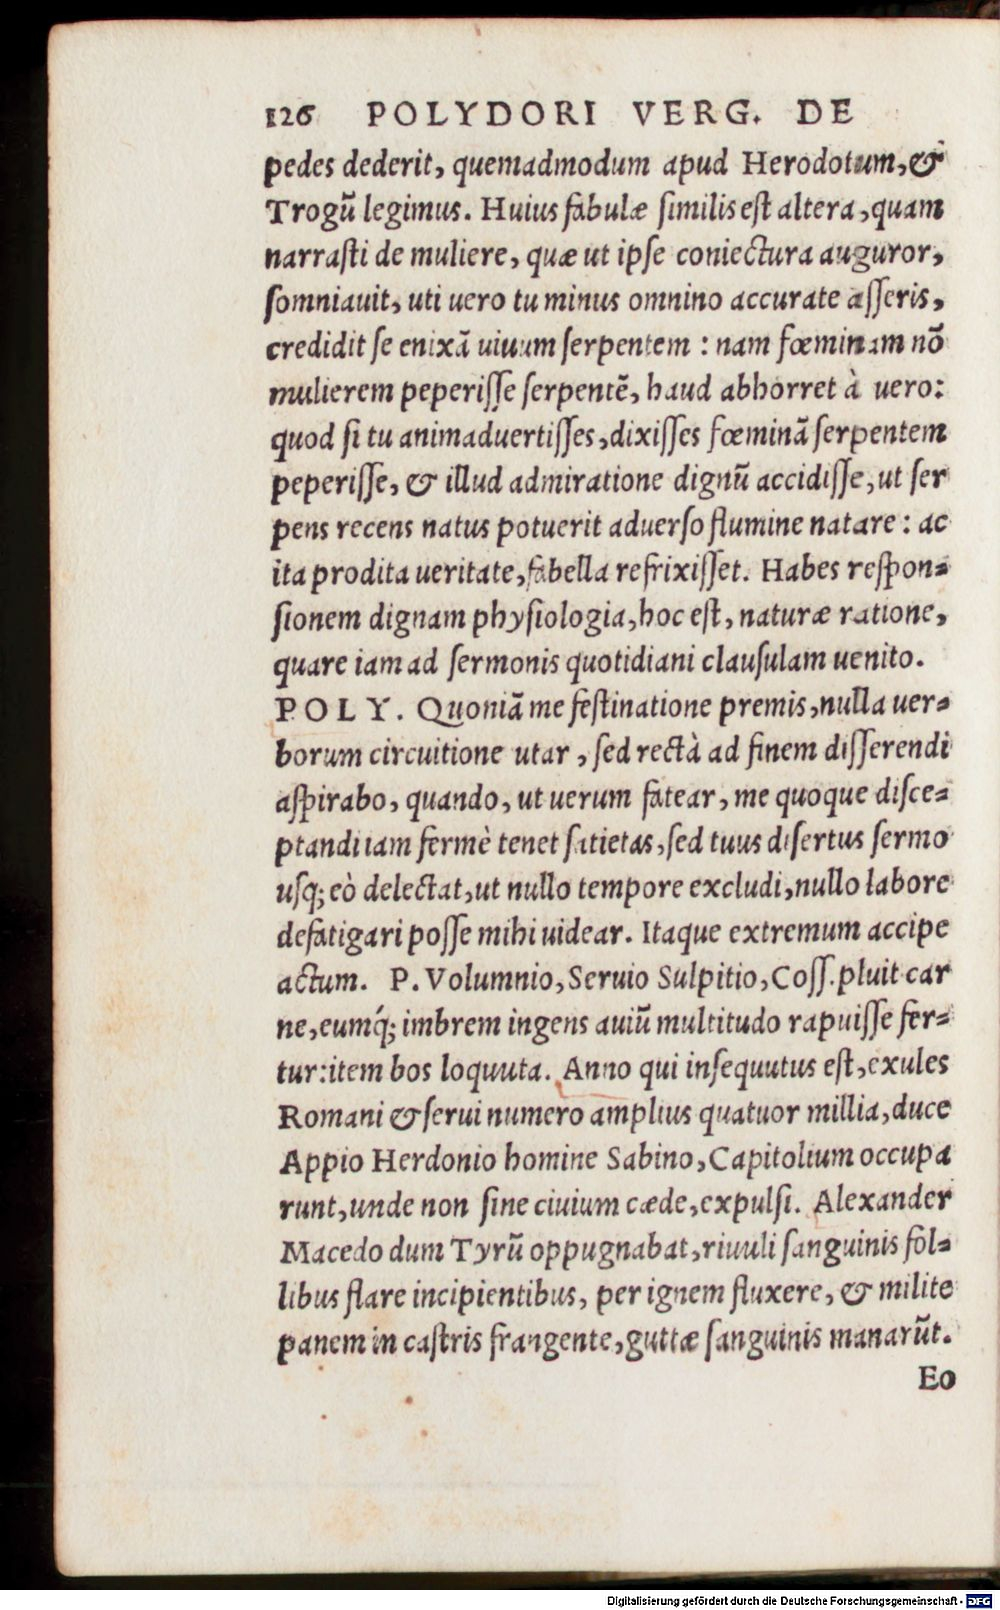 126 POLYDORI VERG. DE
pedes dederit, quemadmodum apud Herodotum, &
Trogū legimus. Huius fabulæ ſimilis eſt altera, quam
narraſti de muliere, quæ ut ipſe coniectura auguror,
ſomniauit, uti uero tu minus omnino accurate aſſeris,
credidit ſe enixā uiuum ſerpentem : nam fœminam nō
mulierem peperiſſe ſerpentē, haud abhorret à uero:
quod ſi tu animaduertiſſes, dixiſſes fœminā ſerpentem
peperiſſe, & illud admiratione dignū accidiſſe, ut ſer
pens recens natus potuerit aduerſo flumine natare : ac
ita prodita ueritate, fabella refrixiſſet. Habes reſpon⸗
ſionem dignam phyſiologia, hoc eſt, naturæ ratione,
quare iam ad ſermonis quotidiani clauſulam uenito.
POLY. Quoniā me feſtinatione premis, nulla uer⸗
borum circuitione utar, ſed rectà ad finem diſſerendi
aſpirabo, quando, ut uerum fatear, me quoque diſce⸗
ptandi iam fermè tenet ſatietas, ſed tuus diſertus ſermo
uſq; eò delectat, ut nullo tempore excludi, nullo labore
defatigari poſſe mihi uidear. Itaque extremum accipe
actum. P. Volumnio, Seruio Sulpitio, Coſſ. pluit car
ne, eumq́; imbrem ingens auiū multitudo rapuiſſe fer⸗
tur: item bos loquuta. Anno qui inſequutus eſt, exules
Romani & ſerui numero amplius quatuor millia, duce
Appio Herdonio homine Sabino, Capitolium occupa
runt, unde non ſine ciuium cæde, expulſi. Alexander
Macedo dum Tyrū oppugnabat, riuuli ſanguinis fol⸗
libus flare incipientibus, per ignem fluxere, & milite
panem in caſtris frangente, guttæ ſanguinis manarūt.
Eo
Digitalisierung gefördert durch die Deutsche Forschungsgemeinschaft - DFG